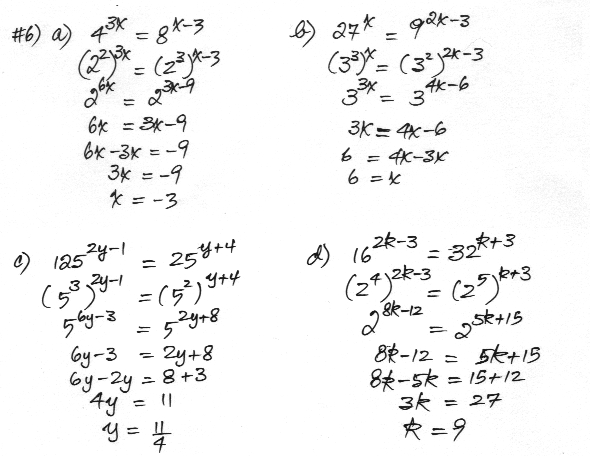 #6) a) 4^3x = 8^x-3
(2^2)^3x = (2^3)^x-3
2^6x = 2^3x-9
6x = 3x-9
6x-3x = -9
3x = -9
x = -3
b) 27^x = 9^2x-3
(3^3)^x = (3^2)^2x-3
3^3x = 3^4x-6
3x = 4x-6
6 = 4x-3x
6 = x
c) 125^2y-1 = 25^y+4
(5^3)^2y-1 = (5^2)^y+4
5^6y-3 = 5^2y+8
6y-3 = 2y+8
6y-2y = 8+3
4y = 11
y = 11/4
d) 16^2k-3 = 32^k+3
(2^4)^2k-3 = (2^5)^k+3
2^8k-12 = 2^5k+15
8k-12 = 5k+15
8k-5k = 15+12
3k = 27
k = 9